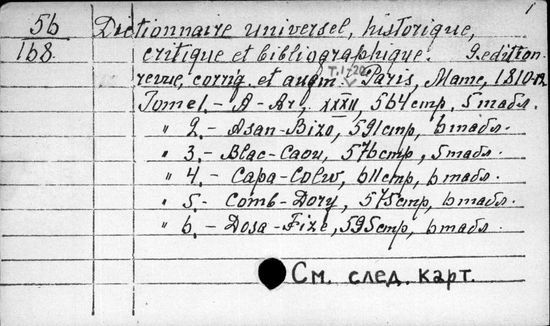 56
168
1
Dictionnaire universel, historique,
critique et bibliographique. 9.edition
revue, corrig. et augm. T.1-20 Paris, Mame, 1810-12
Tome 1.- A-Ar, XXXII, 564 стр, 5 табл.
" 2.- Asan-Bizo, 591 стр, 6 табл.
" 3.- Blac-Caou, 576 стр, 5 табл.
" 4.- Capa-Colw, 611 стр, 6 табл.
" 5.- Comb-Dory, 575 стр, 6 табл.
" 6.- Dosa-Fizé, 595 стр, 6 табл.
См. след. карт.